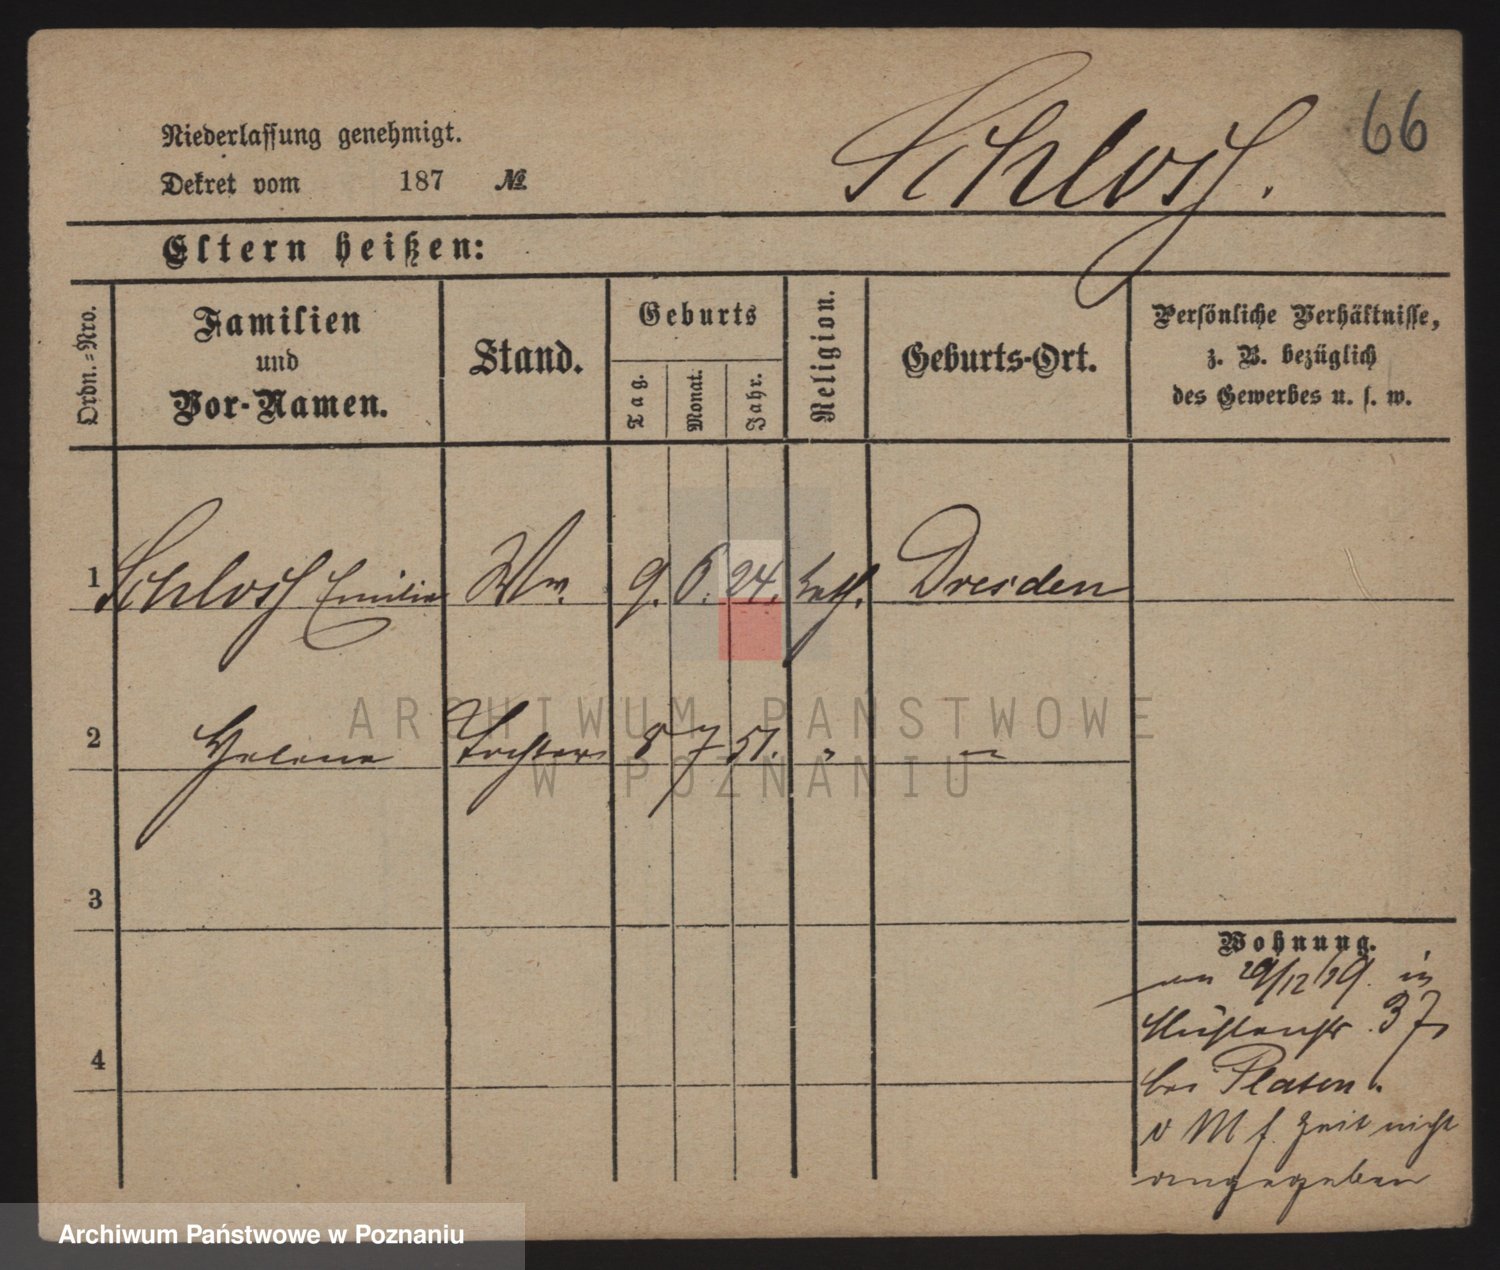 66
Schlosz.
Niederlassung genehmigt.
Dekret vom 187 №
Eltern heißen:
Ordn.-Nro.
Familien
und
Vor-Namen.
Stand.
Geburts
Tag.
Monat.
Jahr.
Religion.
Geburts-Ort.
Persönliche Verhältnisse,
z. B. bezüglich
des Gewerbes u. s. w.
1 Schlosz Emilie Ww. 9. 6. 24. kath. Dresden
2 Helene Tochter 8 7 51. " "
3
4
Wohnung.
29/12 79. in
Mühlenstr. 37,
bei Platen.
v M f. Zeit nicht
angegeben
ARCHIWUM PAŃSTWOWE
W POZNANIU
Archiwum Państwowe w Poznaniu